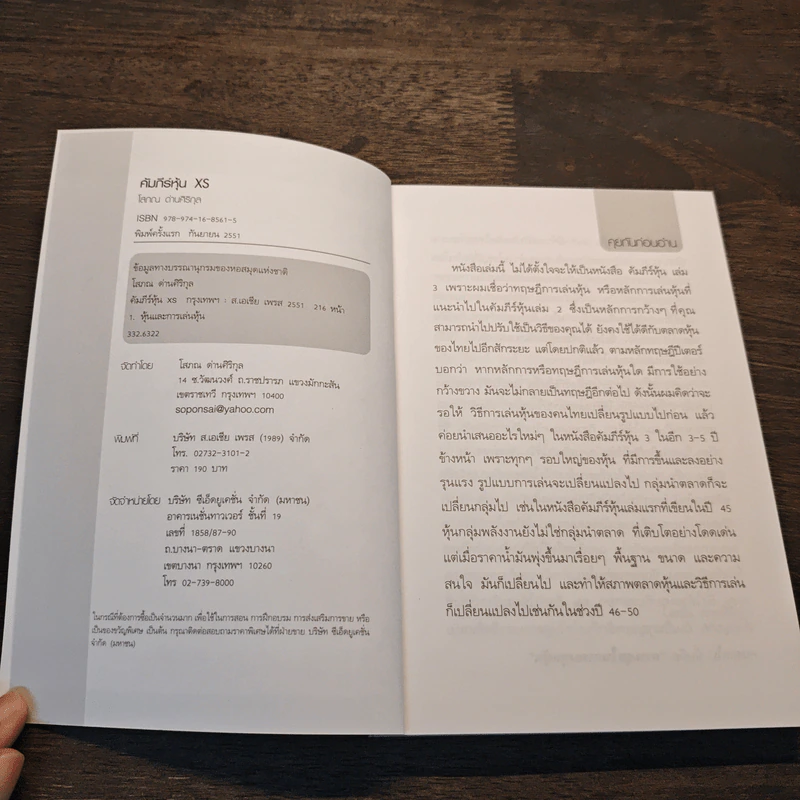 คัมภีร์หุ้น XS
โสภณ ด่านศิริกุล
ISBN 978-974-16-8561-5
พิมพ์ครั้งแรก กันยายน 2551
ข้อมูลทางบรรณานุกรมของหอสมุดแห่งชาติ
โสภณ ด่านศิริกุล
คัมภีร์หุ้น xs กรุงเทพฯ : ส.เอเซีย เพรส 2551 216 หน้า
1. หุ้นและการเล่นหุ้น
332.6322
จัดทำโดย โสภณ ด่านศิริกุล
14 ซ.วัฒนวงศ์ ถ.ราชปรารภ แขวงมักกะสัน
เขตราชเทวี กรุงเทพฯ 10400
soponsai@yahoo.com
พิมพ์ที่ บริษัท ส.เอเซีย เพรส (1989) จำกัด
โทร. 02732-3101-2
ราคา 190 บาท
จัดจำหน่ายโดย บริษัท ซีเอ็ดยูเคชั่น จำกัด (มหาชน)
อาคารเนชั่นทาวเวอร์ ชั้นที่ 19
เลขที่ 1858/87-90
ถ.บางนา-ตราด แขวงบางนา
เขตบางนา กรุงเทพฯ 10260
โทร 02-739-8000
ในกรณีที่ต้องการซื้อเป็นจำนวนมาก เพื่อใช้ในการสอน การฝึกอบรม การส่งเสริมการขาย หรือ
เป็นของขวัญพิเศษ เป็นต้น กรุณาติดต่อสอบถามราคาพิเศษได้ที่ฝ่ายขาย บริษัท ซีเอ็ดยูเคชั่น
จำกัด (มหาชน)
คุยกันก่อนอ่าน
หนังสือเล่มนี้ ไม่ได้ตั้งใจจะให้เป็นหนังสือ คัมภีร์หุ้น เล่ม
3 เพราะผมเชื่อว่าทฤษฎีการเล่นหุ้น หรือหลักการเล่นหุ้นที่
แนะนำไปในคัมภีร์หุ้นเล่ม 2 ซึ่งเป็นหลักการกว้างๆ ที่คุณ
สามารถนำไปปรับใช้เป็นวิธีของคุณได้ ยังคงใช้ได้ดีกับตลาดหุ้น
ของไทยไปอีกสักระยะ แต่โดยปกติแล้ว ตามหลักทฤษฎีปีเตอร์
บอกว่า หากหลักการหรือทฤษฎีการเล่นหุ้นใด มีการใช้อย่าง
กว้างขวาง มันจะไม่กลายเป็นทฤษฎีอีกต่อไป ดังนั้นผมคิดว่าจะ
รอให้ วิธีการเล่นหุ้นของคนไทยเปลี่ยนรูปแบบไปก่อน แล้ว
ค่อยนำเสนออะไรใหม่ๆ ในหนังสือคัมภีร์หุ้น 3 ในอีก 3-5 ปี
ข้างหน้า เพราะทุกๆ รอบใหญ่ของหุ้น ที่มีการขึ้นและลงอย่าง
รุนแรง รูปแบบการเล่นจะเปลี่ยนแปลงไป กลุ่มนำตลาดก็จะ
เปลี่ยนกลุ่มไป เช่นในหนังสือคัมภีร์หุ้นเล่มแรกที่เขียนในปี 45
หุ้นกลุ่มพลังงานยังไม่ใช่กลุ่มนำตลาด ที่เติบโตอย่างโดดเด่น
แต่เมื่อราคาน้ำมันพุ่งขึ้นมาเรื่อยๆ พื้นฐาน ขนาด และความ
สนใจ มันก็เปลี่ยนไป และทำให้สภาพตลาดหุ้นและวิธีการเล่น
ก็เปลี่ยนแปลงไปเช่นกันในช่วงปี 46-50